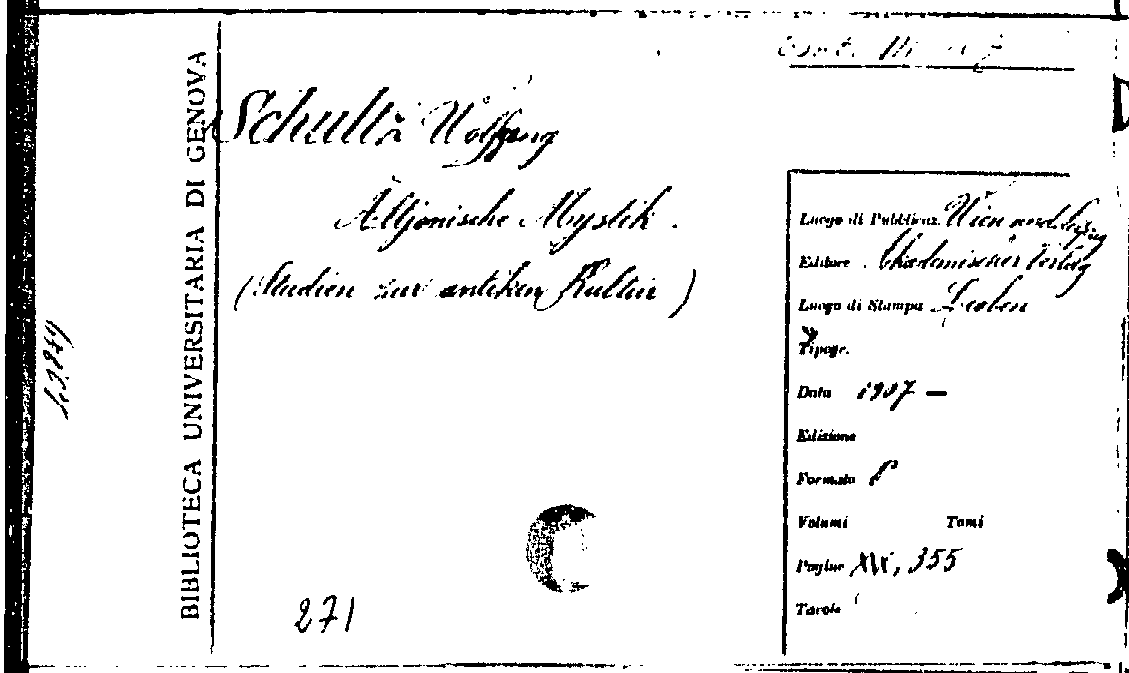 BIBLIOTECA UNIVERSITARIA DI GENOVA
Schultz Wolfgang
Altjonische Mystik.
(Studien zur antiken Kultur)
271
Luogo di Pubblicaz. Wien und Leipzig
Editore Akademischer Verlag
Luogo di Stampa Leoben
Tipogr.
Data 1907 —
Edizione
Formato 8
Volumi Tomi
Pagine XVI, 355
Tavole